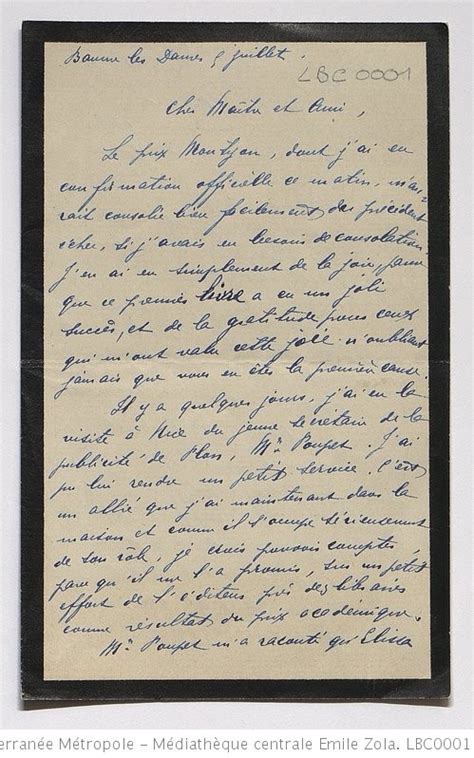 Baume les Dames 5 juillet.
LBC0001
Cher Maître et Ami,
Le prix Montyon, dont j'ai eu
confirmation officielle ce matin, m'au-
rait consolée bien facilement du précédent
échec, si j'avais eu besoin de consolation.
J'en ai eu simplement de la joie, parce
que ce premier livre a eu un joli
succès, et de la gratitude pour ceux
qui m'ont valu cette joie n'oubliant
jamais que vous en êtes la première cause.
Il y a quelques jours, j'ai eu la
visite à Nice du jeune secrétaire de la
publicité de Plon, Mr Poupet. J'ai
pu lui rendre un petit service. C'est
un allié que j'ai maintenant dans la
maison et comme il s'occupe sérieusement
de son rôle, je crois pouvoir compter,
parce qu'il me l'a promis, sur un petit
effort de l'éditeur près des libraires
comme résultat du prix académique.
Mr Poupet m'a raconté qu'Elissa
erranée Métropole – Médiathèque centrale Emile Zola. LBC0001